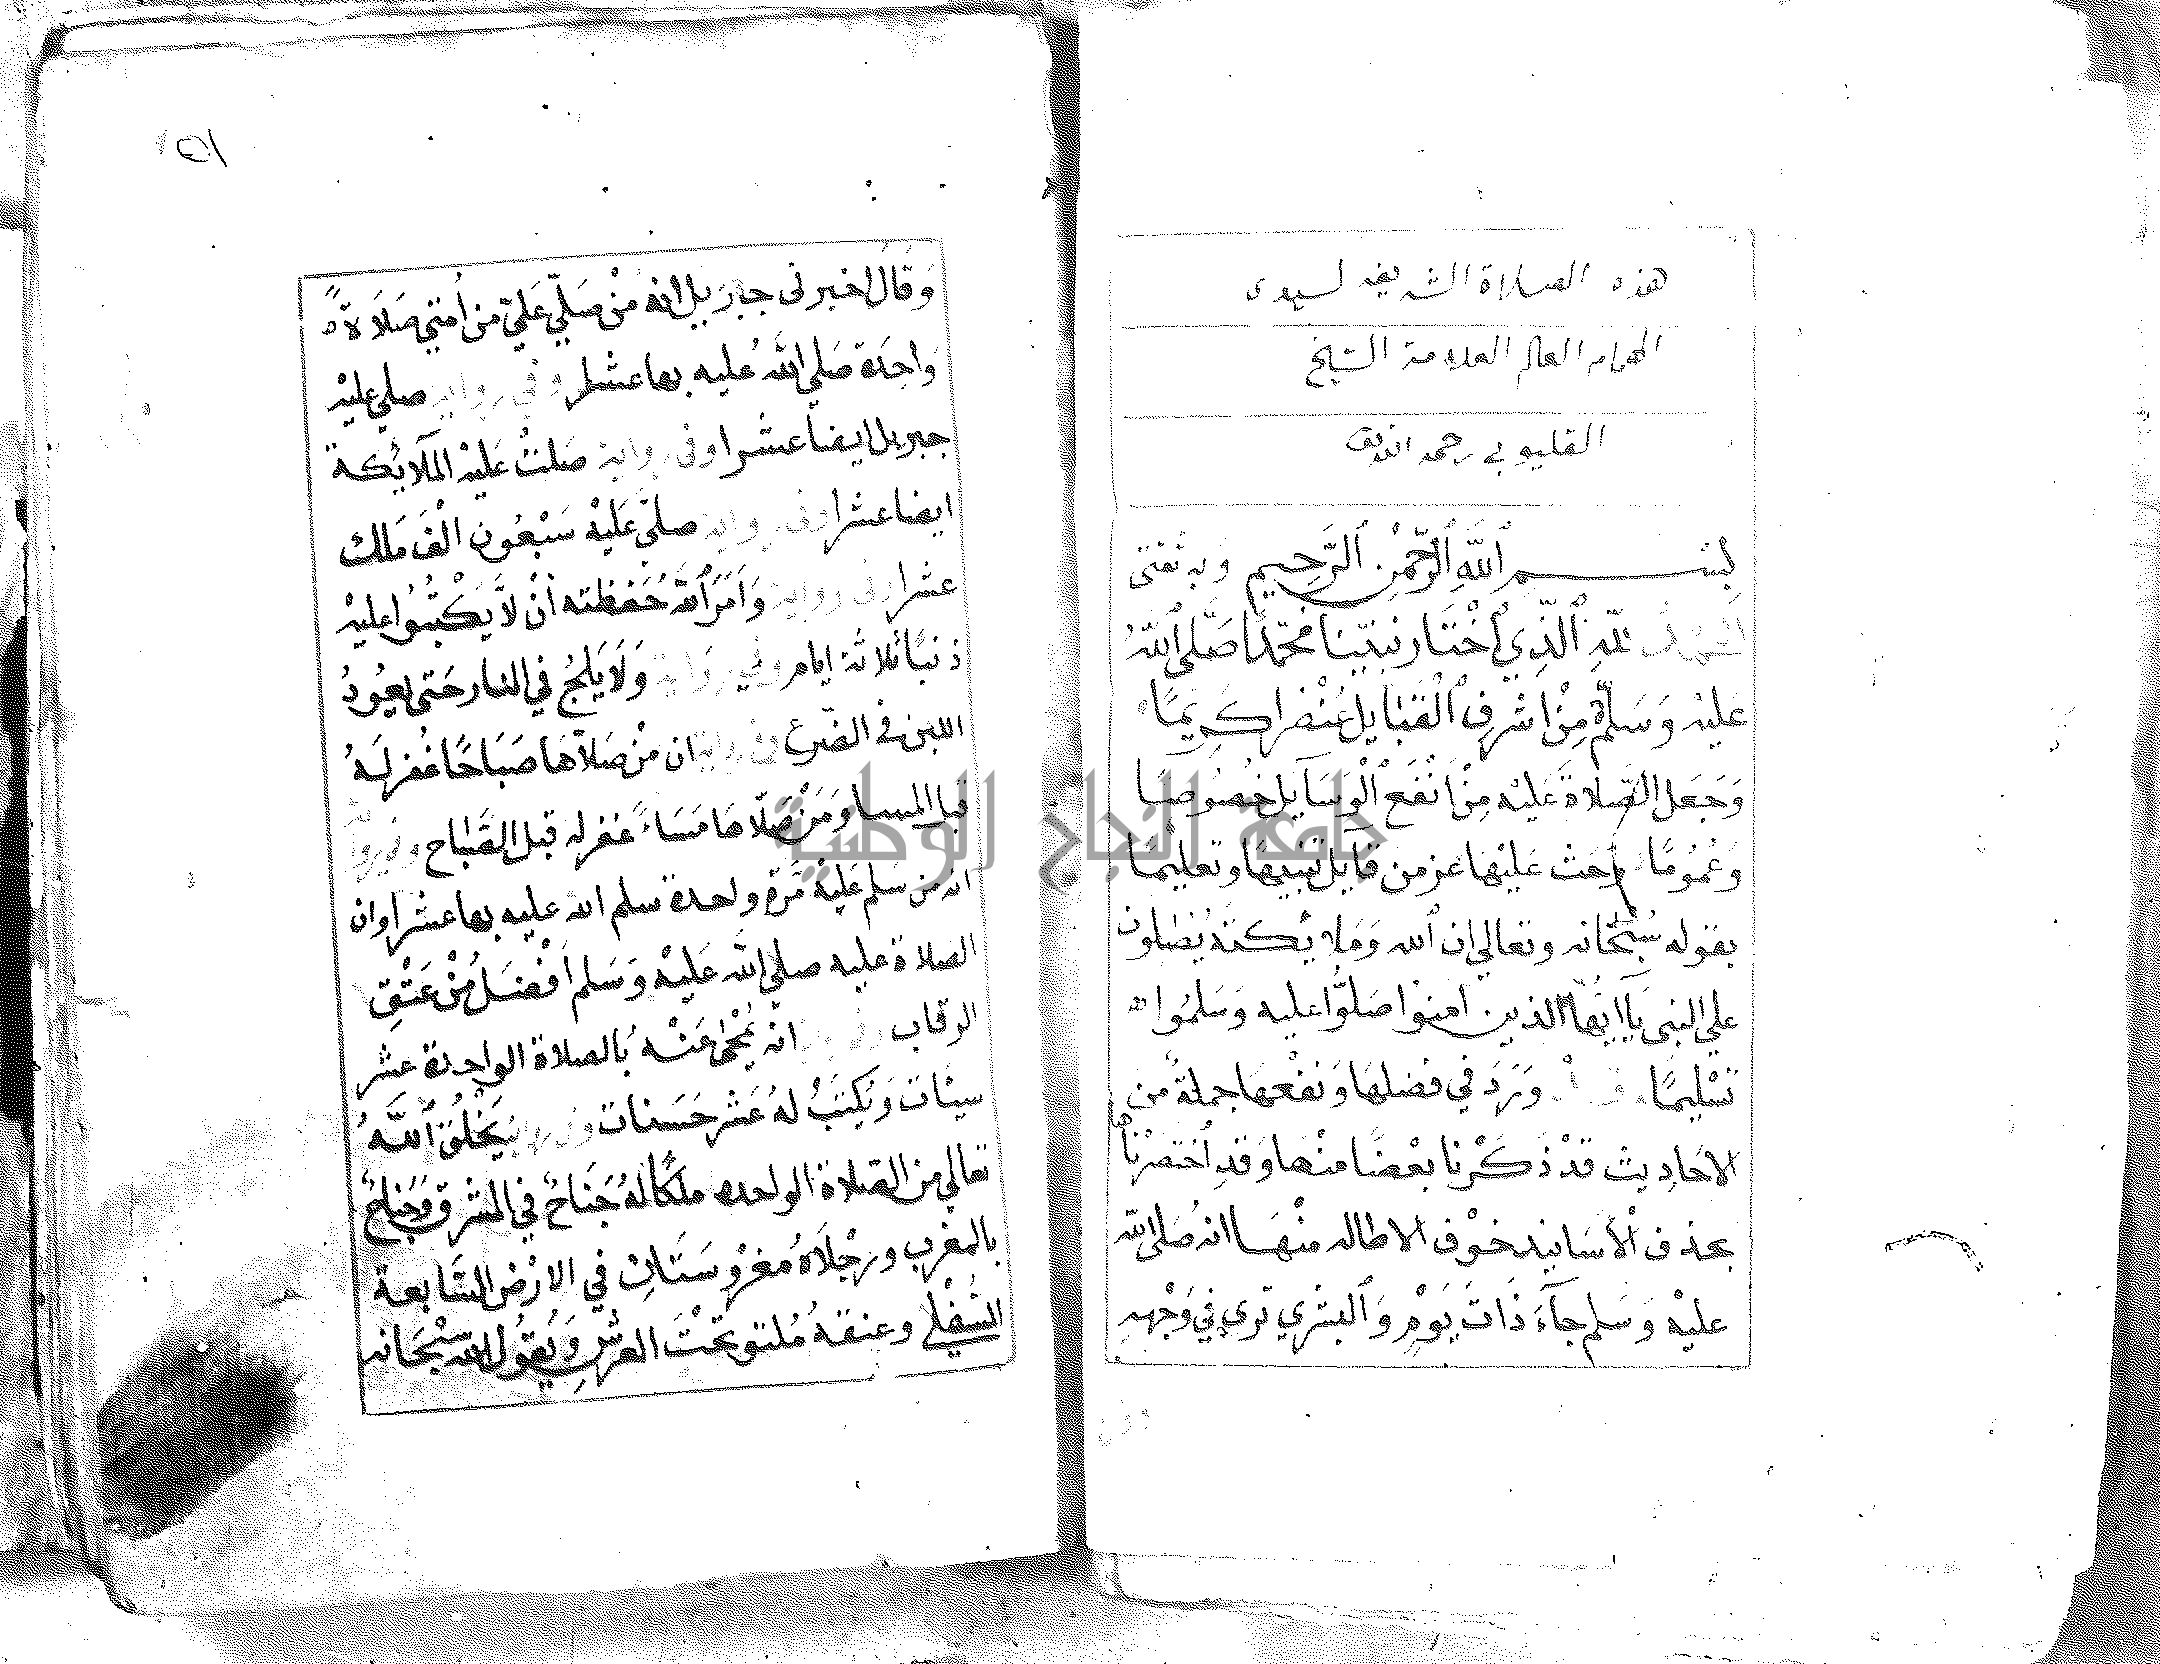 هذه الصلاة الشريفه لسيدى
الهمام العالم العلامة الشيخ
القليوبي رحمه الله
بسم الله الرحمن الرحيم وبه ثقتى
الحمد لله الذي اختار نبينا محمدا صلى الله
عليه وسلم من اشرف القبايل عنصرا كريما
وجعل الصلاة عليه من انفع الوسايل خصوصا
وعموما وحث عليها عز من قايل تنبيها وتعليما
بقوله سبحانه وتعالي ان الله وملايكته يصلون
علي النبي يا ايها الذين امنوا صلوا عليه وسلموا
تسليما ورد في فضلها ونفعها جملة من
الاحاديث قد ذكرنا بعضا منها وقد اختصرنا
بحذف الأسانيد خوف الاطاله منها انه صلى الله
عليه وسلم جآء ذات يوم والبشري تري في وجهه
١٥١
وقال اخبرنى جبريل انه من صلي علي من أمتي صلاة
واحدة صلي الله عليه بها عشرا وفي رواية صلي عليه
جبريل ايضا عشرا وفى رواية صلت عليه الملايكة
ايضا عشرا وفى رواية صلي عليه سبعون الف ملك
عشرا وفى رواية وامر الله حفظته أن لا يكتبوا عليه
ذنبا ثلاثة ايام وفي رواية ولا يلج في النار حتى يعود
اللبن في الضرع وفى رواية ان من صلاها صباحا غفر له
قبل المسا ومن صلاها مساء غفر له قبل الصباح وفي رواية
انه من سلم عليه مرة واحدة سلم الله عليه بها عشرا وان
الصلاة عليه صلي الله عليه وسلم أفضل من عتق
الرقاب وفي رواية انه يمحى عنه بالصلاة الواحدة عشر
سيئات ويكتب له عشر حسنات وفى رواية يخلق الله
تعالي من الصلاة الواحده ملكا له جناح في المشرق وجناح
بالمغرب ورجلاه مغروستان في الارض السابعة
السفلي وعنقه ملتو تحت العرش ويقول الله سبحانه
جامعة النجاح الوطنية